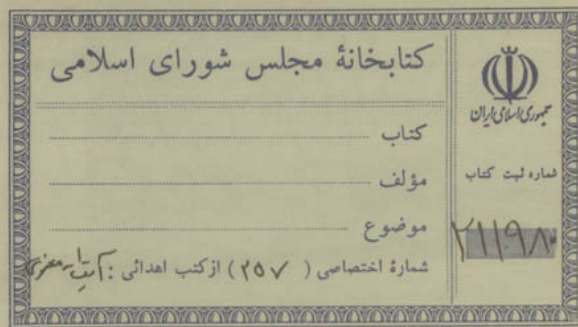 کتابخانهٔ مجلس شورای اسلامی
کتاب
مؤلف
موضوع
شمارهٔ اختصاصی ( ۲۵۷ ) از کتب اهدائی :
جمهوری اسلامی ایران
شماره ثبت کتاب
۲۱۱۹۸۰